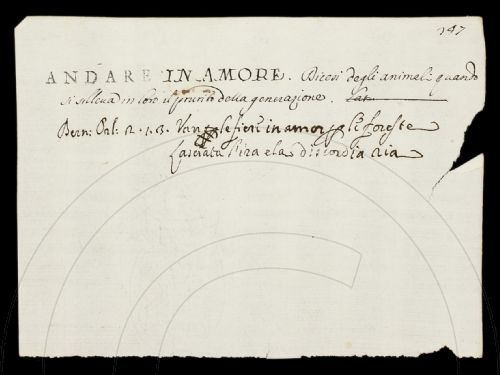 147
ANDARE IN AMORE. Dicesi degli animali quando
si solleva in loro il prurito della generazione. Lat.
Bern: Orl: 2. 1. 3. Van le fiere in amor per le foreste
Lasciata l'ira e la discordia ria